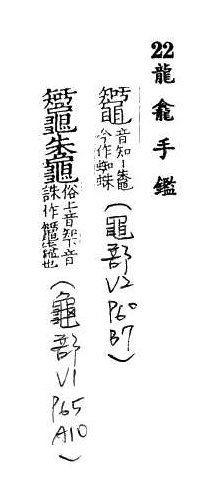 22 龍龕手鑑
音知丨鼄
今作蜘蛛
(黽部 V2 P60 B7)
俗上音知下音
誅作鼅鼄也
(龜部 V1 P65 A10)